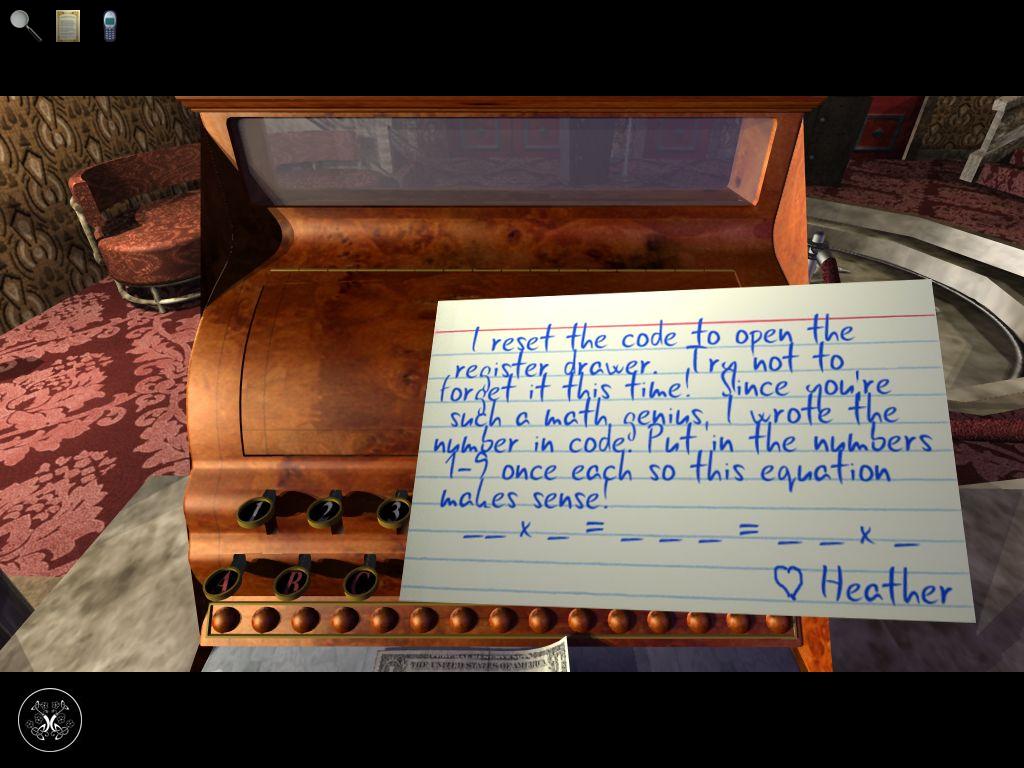 I reset the code to open the
register drawer. Try not to
forget it this time! Since you're
such a math genius, I wrote the
number in code. Put in the numbers
1-9 once each so this equation
makes sense!
_ _ x _ = _ _ _ = _ _ x _
♡ Heather
1 2 3
A B C
THE UNITED STATES OF AMERICA